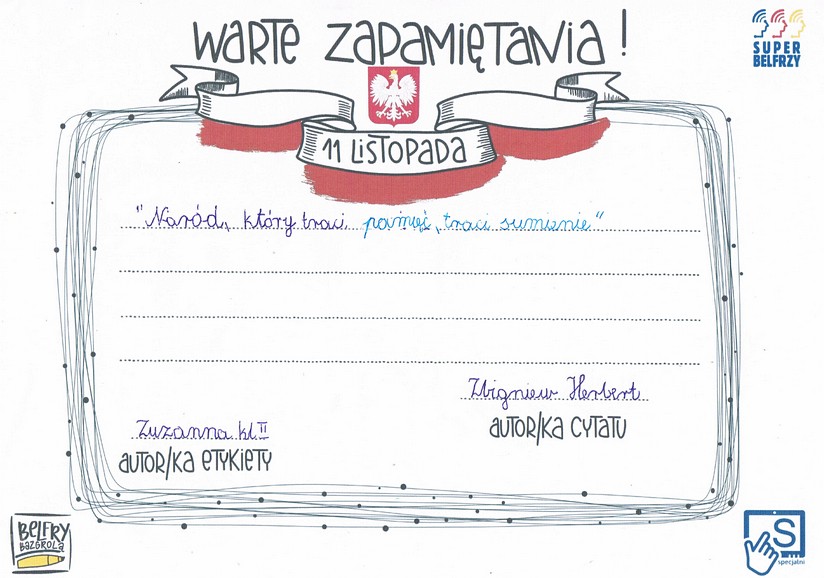 WARTE ZAPAMIĘTANIA!
SUPER
BELFRZY
11 LISTOPADA
"Naród, który traci pamięć, traci sumienie"
Zbigniew Herbert
AUTOR/KA CYTATU
Zuzanna kl II
AUTOR/KA ETYKIETY
BELFRY
BAZGROLĄ
S
specjalni